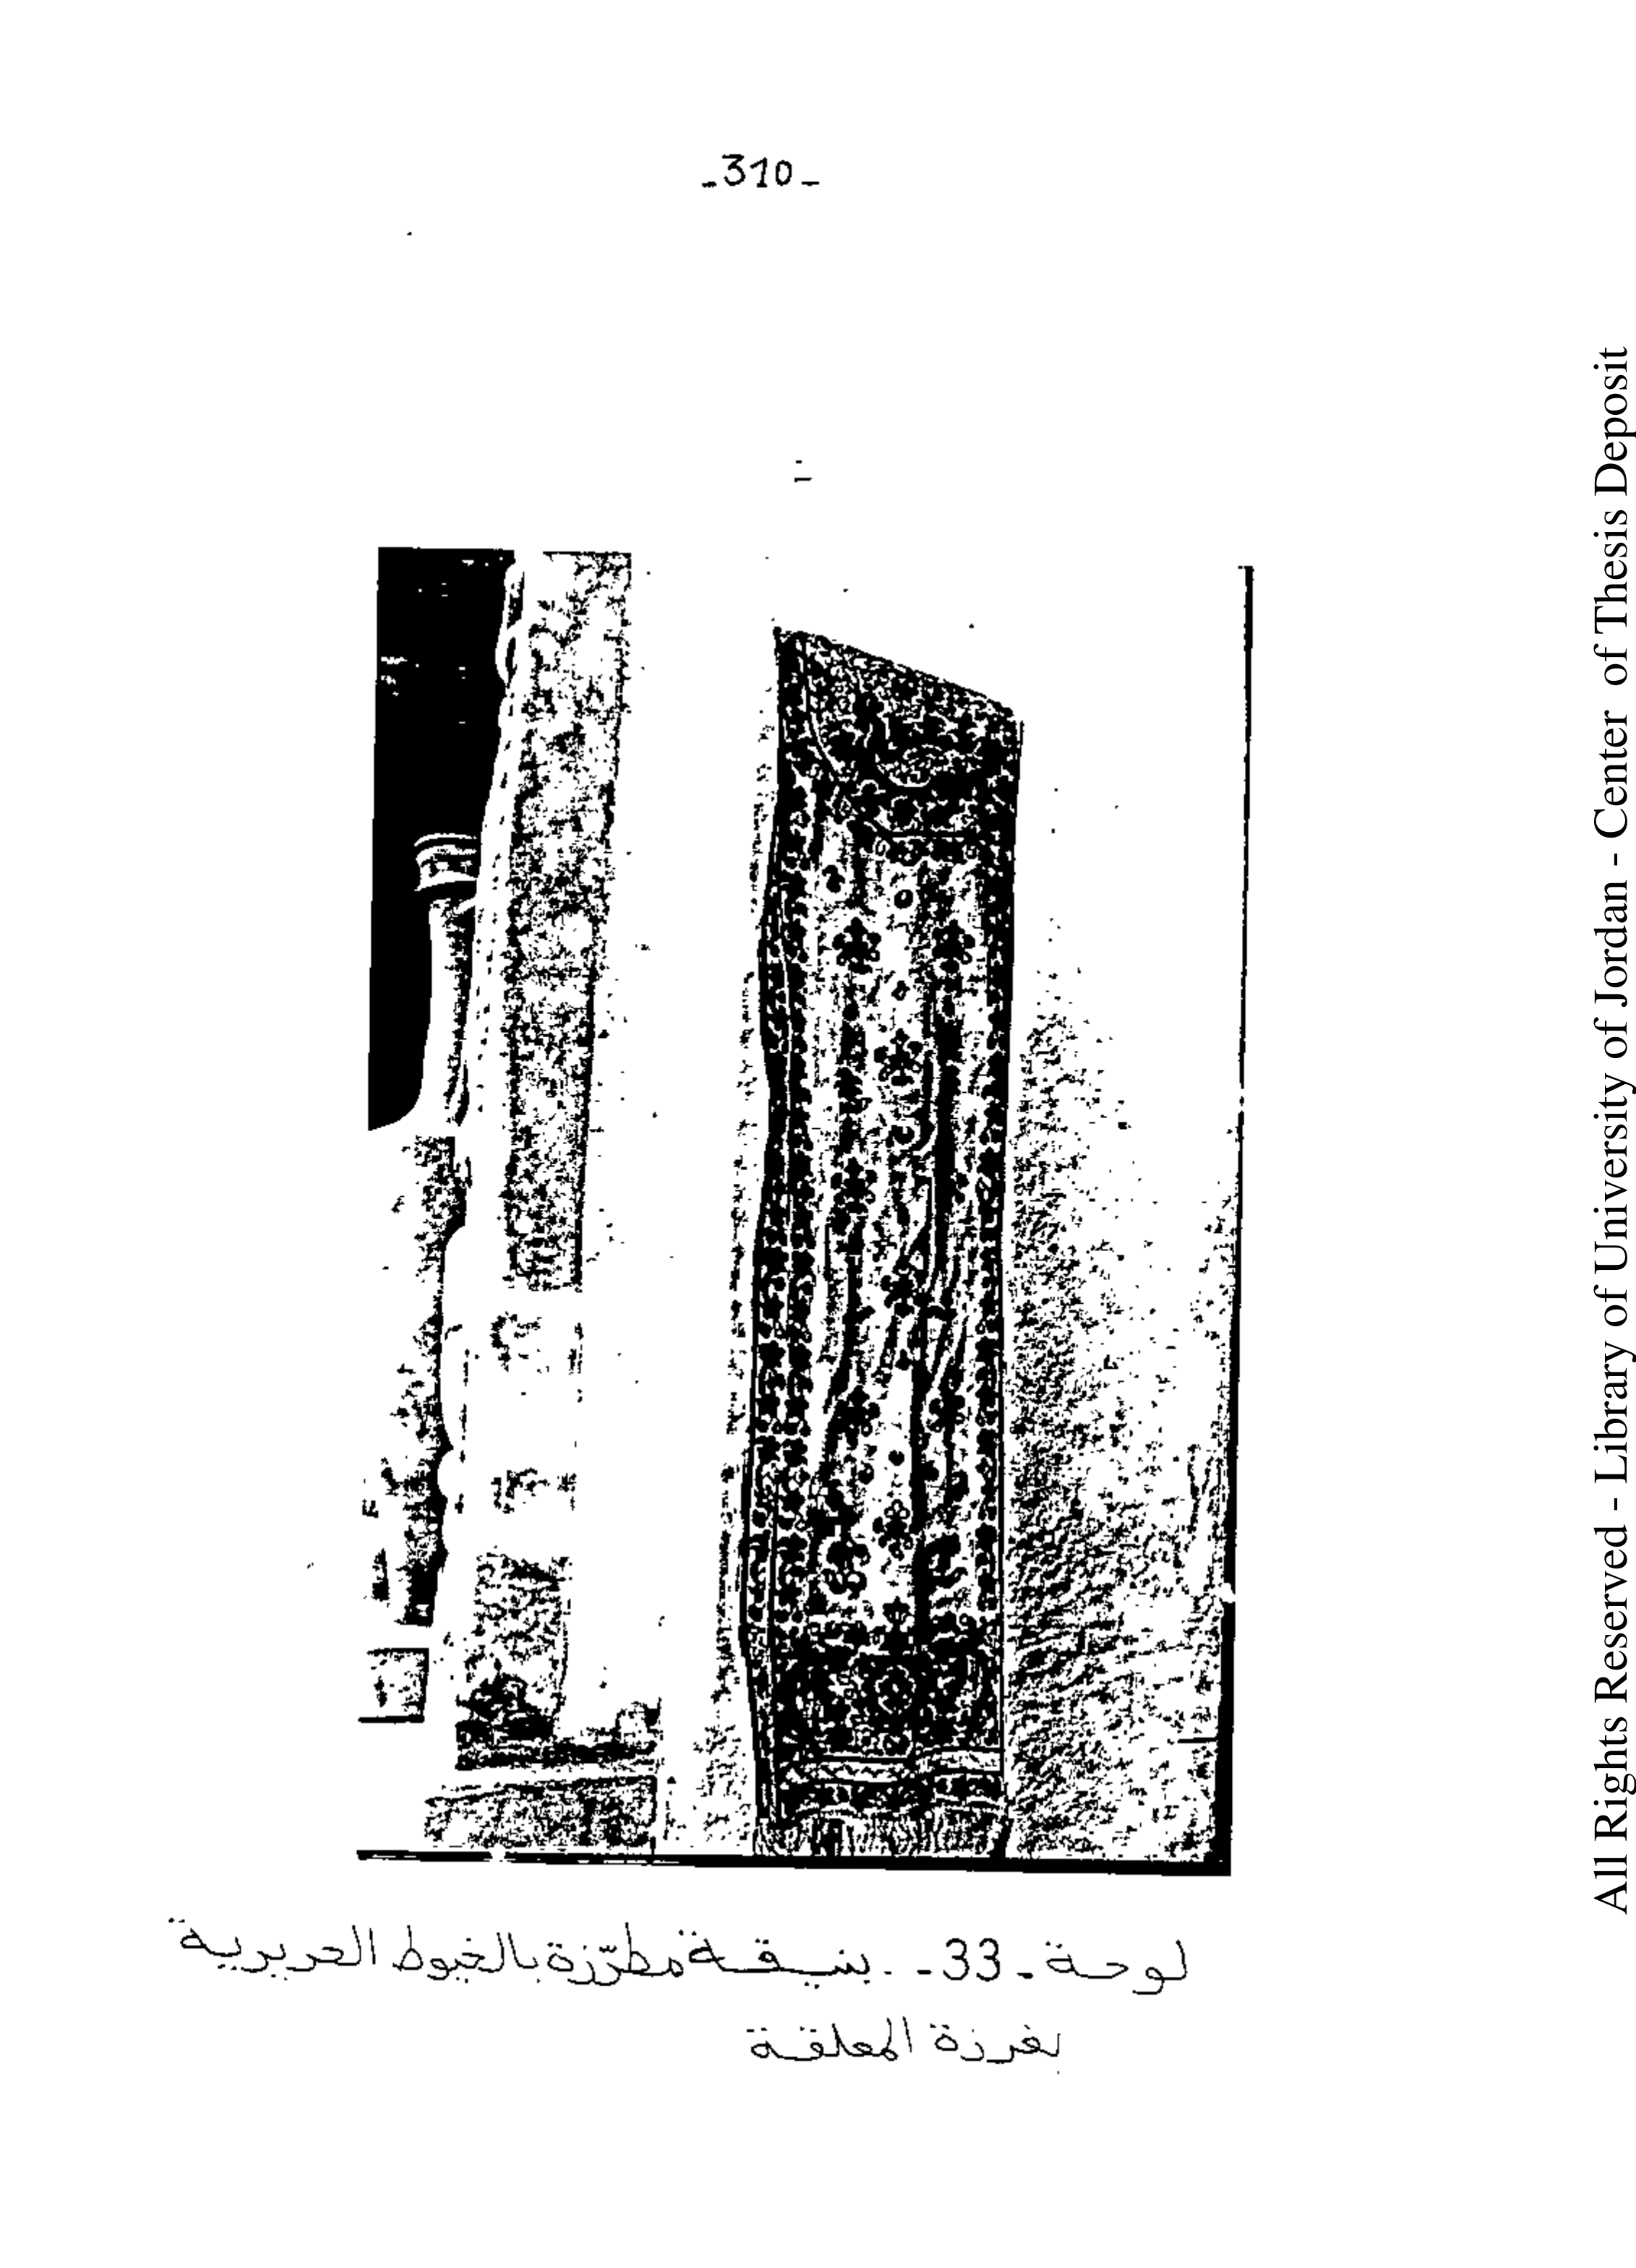 -310-
لوحة -33- . بنيقة مطرّزة بالخيوط الحريرية
بغرزة المعلقة
All Rights Reserved - Library of University of Jordan - Center of Thesis Deposit